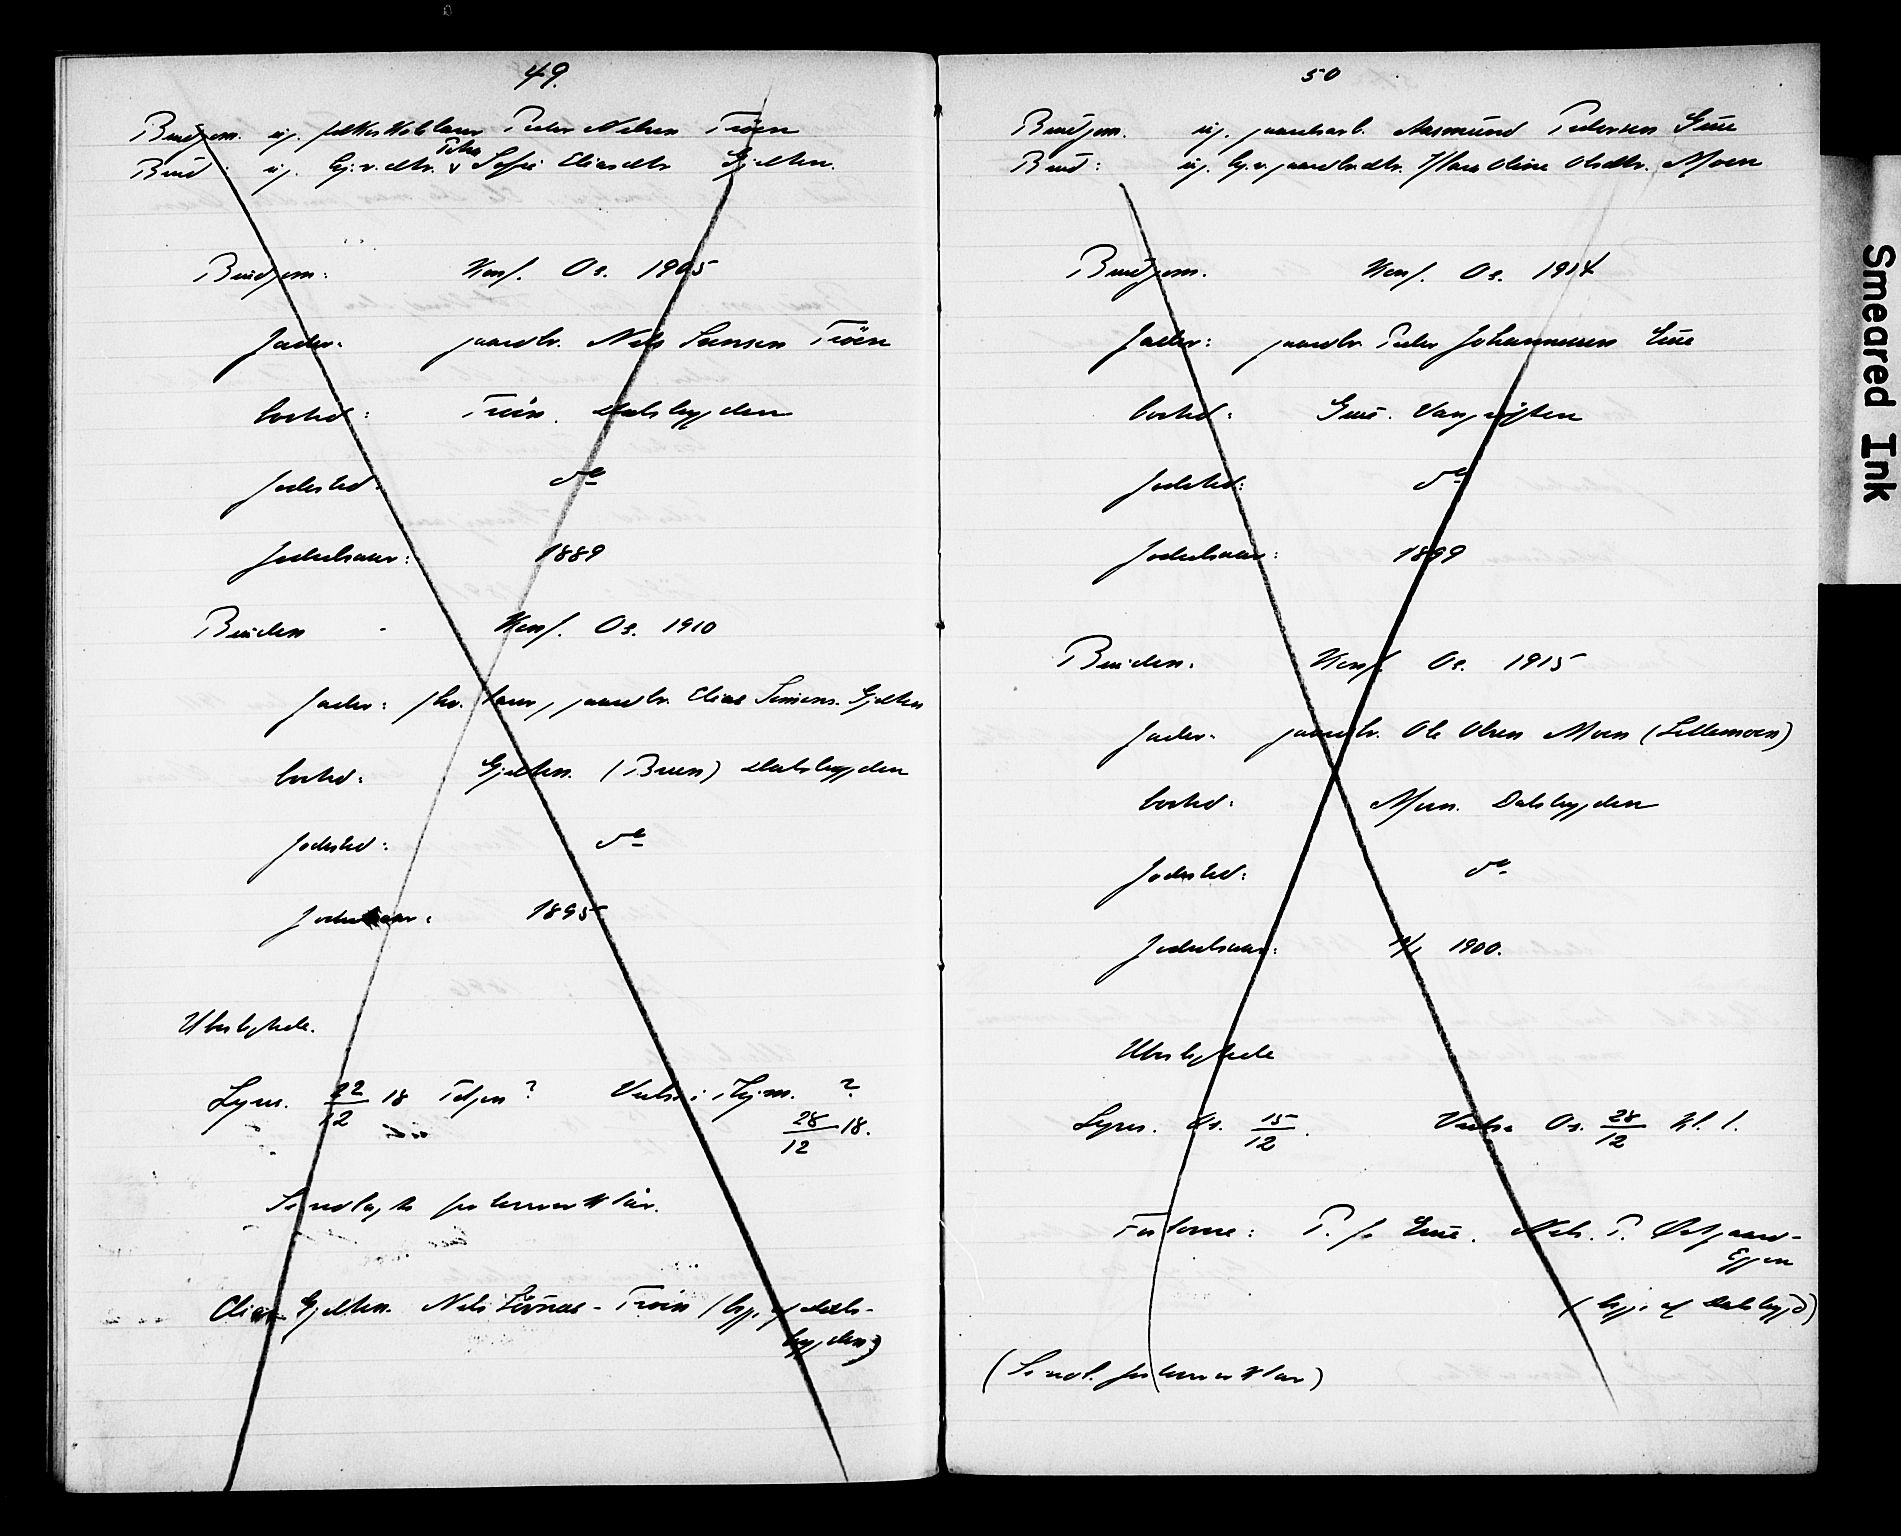 49.
Brudgom. ug. folkeskolelærer Peder Nelsen Tröen
Petra
Brud: ug. hj.v.dtr. v Sofie Eliasdtr Gjelten.
Brudgom: Konf. Os. 1905
Fader: gaardbr. Nels Simsen Tröen
bosted: Tröen. Dalsbygden
fodested: do
Fødselsaar: 1889
Bruden - Konf. Os. 1910
Fader: fhv. lærer, gaardbr. Elias Simens. Gjelten
bosted: Gjelten. (Bruen) Dalsbygden
fodested: do
fødselsaar: 1895
Ubeslegtede.
Lysn. 22/12 18 Tolgen? Vielse i Hjem. ?
28/12 18.
Forlovere:
Elias Gjelten. Nels Tröen (bgge af Dals-
bygden)
50
Brudgom. ug. gaardsarb. Aasmund Pedersen Grue
Brud: ug. hj.v. gaardbr.dtr. Oline Olsdtr. Moen
Brudgom. Konf. Os. 1914
fader: gaardbr. Peder Johannesen Grue
bosted: Grue. Vangrøften
fodested: do
fødselsaar: 1899
Bruden. Konf. Os. 1915
fader. gaardbr. Ole Olsen Moen (Lillemoen)
bosted: Moen. Dalsbygden
fodested: do
fødselsaar: 1900.
Ubeslegtede
Lysn. Os. 15/12. Vielse Os. 28/12 kl. 1.
Forlovere: P. J. Grue. Nels. P. Østgaard-
Eggen
(bgge af Dalsbygd)
Smeared Ink